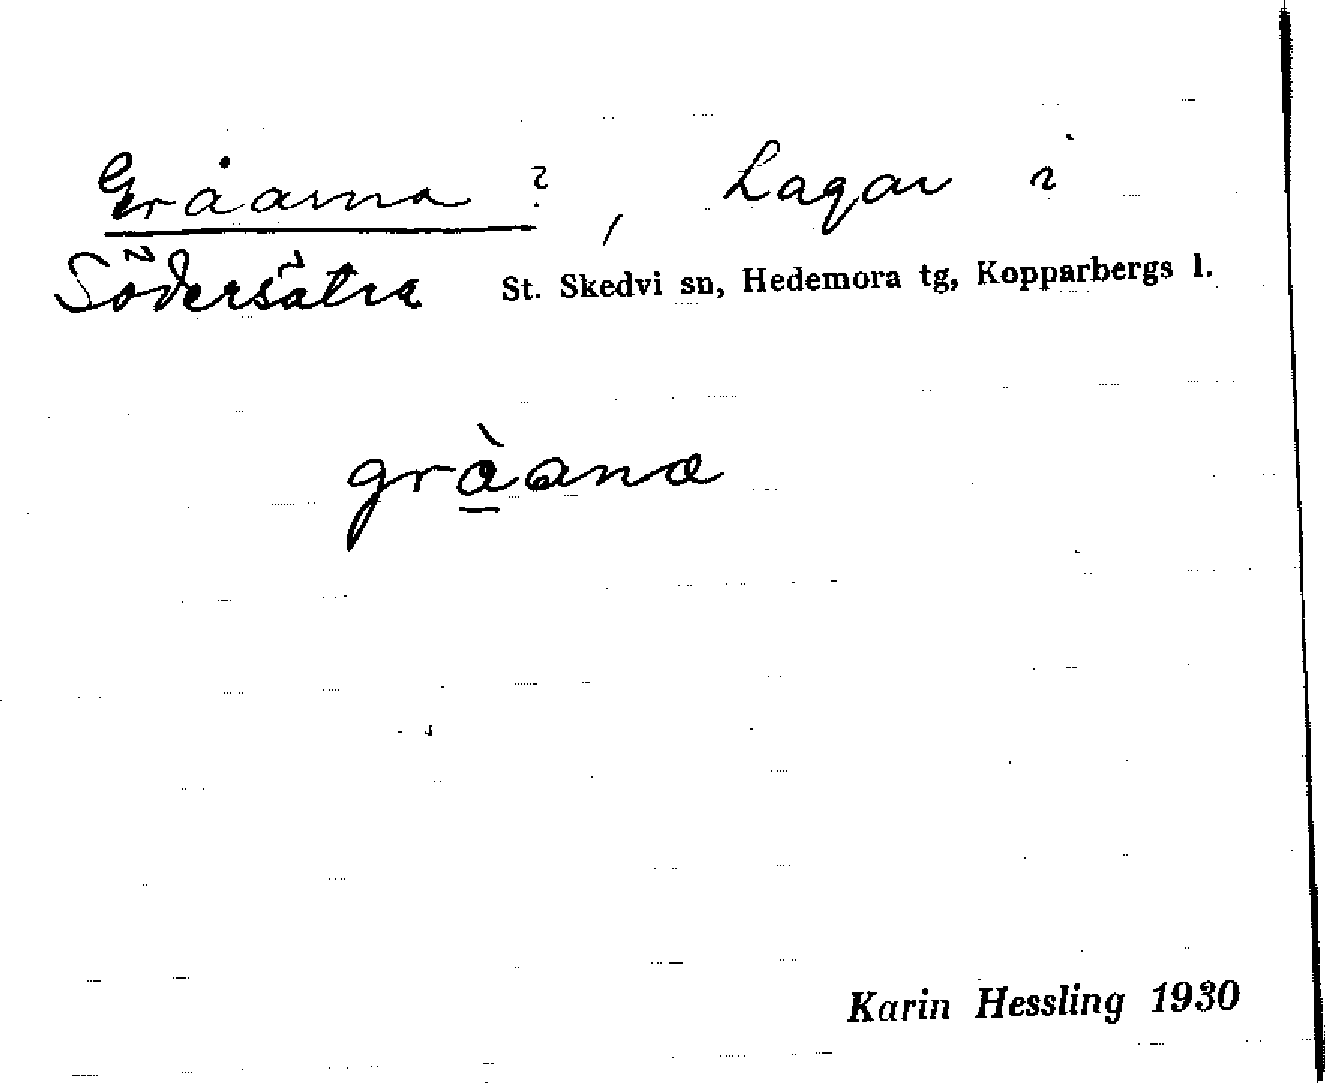 Gråarna ?, Hagar i
Södersätra St. Skedvi sn, Hedemora tg, Kopparbergs l.
gràana
Karin Hessling 1930